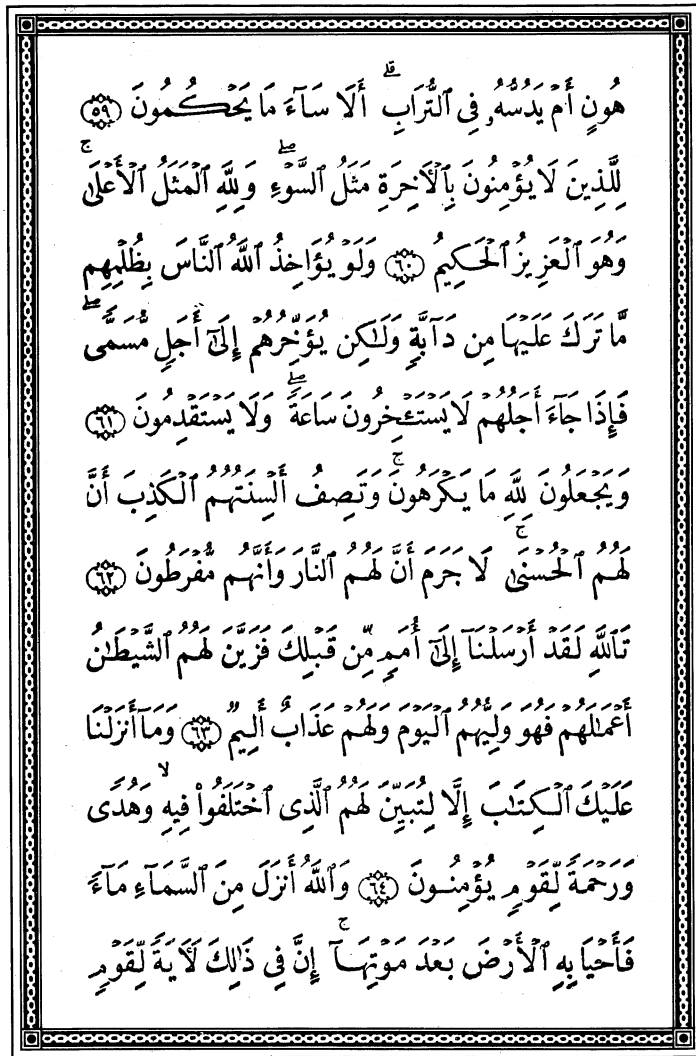 هُونٍ أَمْ يَدُسُّهُۥ فِى ٱلتُّرَابِ ۗ أَلَا سَآءَ مَا يَحْكُمُونَ ﴿٥٩﴾
لِلَّذِينَ لَا يُؤْمِنُونَ بِٱلْأَخِرَةِ مَثَلُ ٱلسَّوْءِ ۖ وَلِلَّهِ ٱلْمَثَلُ ٱلْأَعْلَىٰ ۚ
وَهُوَ ٱلْعَزِيزُ ٱلْحَكِيمُ ﴿٦٠﴾ وَلَوْ يُؤَاخِذُ ٱللَّهُ ٱلنَّاسَ بِظُلْمِهِم
مَّا تَرَكَ عَلَيْهَا مِن دَآبَّةٍ وَلَٰكِن يُؤَخِّرُهُمْ إِلَىٰٓ أَجَلٍ مُّسَمًّى ۖ
فَإِذَا جَآءَ أَجَلُهُمْ لَا يَسْتَـْٔخِرُونَ سَاعَةً ۖ وَلَا يَسْتَقْدِمُونَ ﴿٦١﴾
وَيَجْعَلُونَ لِلَّهِ مَا يَكْرَهُونَ ۚ وَتَصِفُ أَلْسِنَتُهُمُ ٱلْكَذِبَ أَنَّ
لَهُمُ ٱلْحُسْنَىٰ ۚ لَا جَرَمَ أَنَّ لَهُمُ ٱلنَّارَ وَأَنَّهُم مُّفْرَطُونَ ﴿٦٢﴾
تَٱللَّهِ لَقَدْ أَرْسَلْنَآ إِلَىٰٓ أُمَمٍ مِّن قَبْلِكَ فَزَيَّنَ لَهُمُ ٱلشَّيْطَٰنُ
أَعْمَٰلَهُمْ فَهُوَ وَلِيُّهُمُ ٱلْيَوْمَ وَلَهُمْ عَذَابٌ أَلِيمٌ ﴿٦٣﴾ وَمَآ أَنزَلْنَا
عَلَيْكَ ٱلْكِتَٰبَ إِلَّا لِتُبَيِّنَ لَهُمُ ٱلَّذِى ٱخْتَلَفُوا۟ فِيهِ ۙ وَهُدًى
وَرَحْمَةً لِّقَوْمٍ يُؤْمِنُونَ ﴿٦٤﴾ وَٱللَّهُ أَنزَلَ مِنَ ٱلسَّمَآءِ مَآءً
فَأَحْيَا بِهِ ٱلْأَرْضَ بَعْدَ مَوْتِهَآ ۚ إِنَّ فِى ذَٰلِكَ لَأَيَةً لِّقَوْمٍ